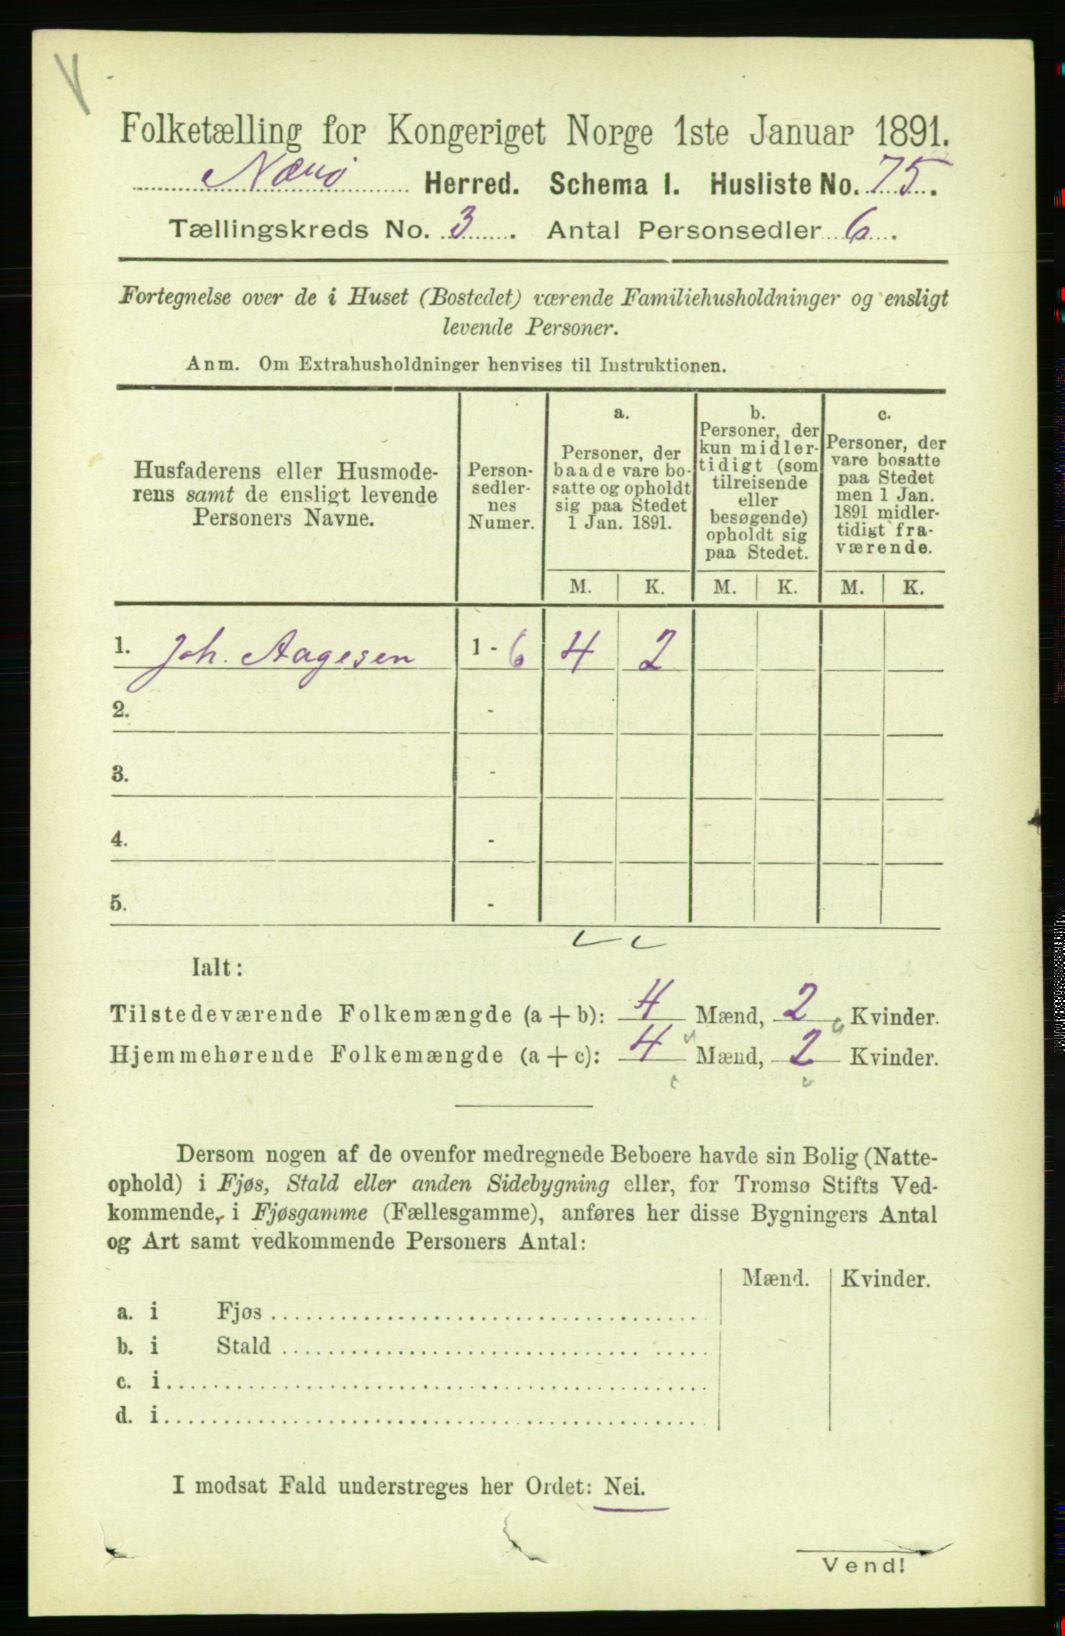 Folketælling for Kongeriget Norge 1ste Januar 1891.
Nærø Herred. Schema I. Husliste No. 75.
Tællingskreds No. 3. Antal Personsedler 6.
Fortegnelse over de i Huset (Bostedet) værende Familiehusholdninger og ensligt
levende Personer.
Anm. Om Extrahusholdninger henvises til Instruktionen.
Husfaderens eller Husmode-
rens samt de ensligt levende
Personers Navne.
Person-
sedler-
nes
Numer.
a.
Personer, der
baade vare bo-
satte og opholdt
sig paa Stedet
1 Jan. 1891.
b.
Personer, der
kun midler-
tidigt (som
tilreisende
eller
besøgende)
opholdt sig
paa Stedet.
c.
Personer, der
vare bosatte
paa Stedet
men 1 Jan.
1891 midler-
tidigt fra-
værende.
M. K. M. K. M. K.
1. Joh. Aagesen 1 - 6 4 2
2. -
3. -
4. -
5. -
Ialt:
Tilstedeværende Folkemængde (a + b): 4 Mænd, 2 Kvinder.
Hjemmehørende Folkemængde (a + c): 4 Mænd, 2 Kvinder.
Dersom nogen af de ovenfor medregnede Beboere havde sin Bolig (Natte-
ophold) i Fjøs, Stald eller anden Sidebygning eller, for Tromsø Stifts Ved-
kommende, i Fjøsgamme (Fællesgamme), anføres her disse Bygningers Antal
og Art samt vedkommende Personers Antal:
Mænd. Kvinder.
a. i Fjøs
b. i Stald
c. i
d. i
I modsat Fald understreges her Ordet: Nei.
Vend!